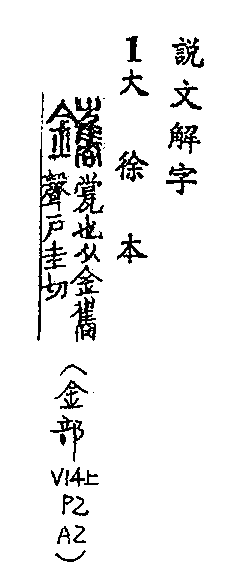 說文解字
1大徐本
鑴㽍也从金巂
聲戶圭切
(金部
V14上
P2
A2)